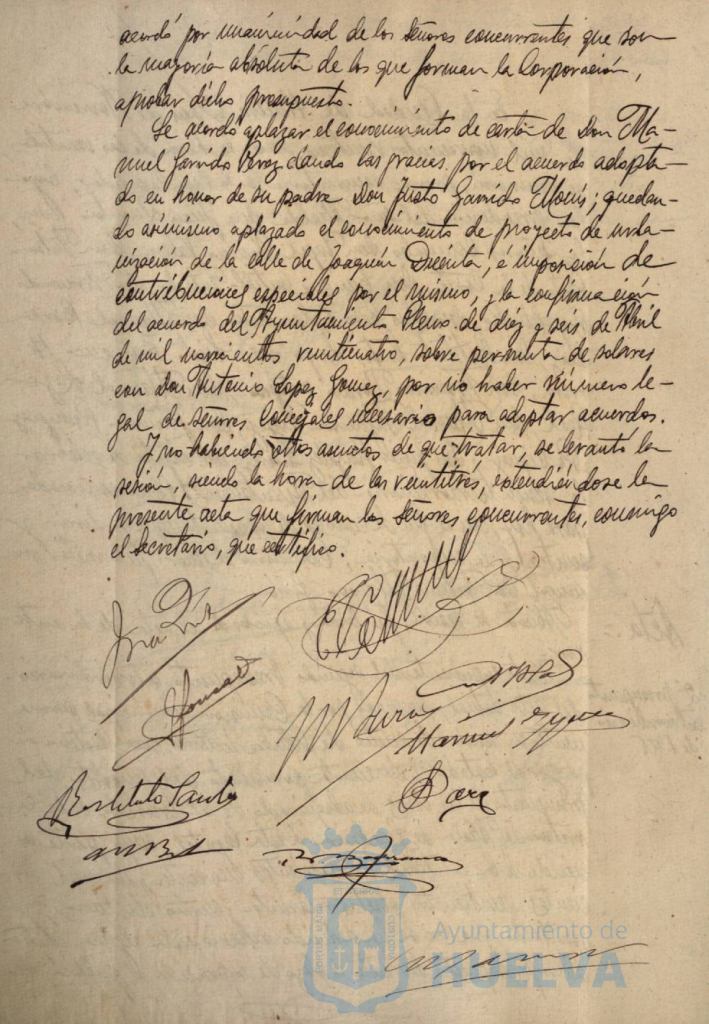 acordó por unanimidad de los señores concurrentes que son
la mayoría absoluta de los que forman la Corporación,
aprobar dicho presupuesto.
Se acordó aplazar el conocimiento de carta de Don Ma-
nuel Garrido Perez dando las gracias por el acuerdo adopta-
do en honor de su padre Don Justo Garrido Mous; quedan-
do asimismo aplazado el conocimiento de proyecto de urba-
nización de la calle de Joaquín Dicenta, é imposición de
contribuciones especiales por el mismo, y la confirmación
del acuerdo del Ayuntamiento Pleno de diez y seis de Abril
de mil novecientos veinticuatro, sobre permuta de solares
con Don Antonio Lopez Gomez, por no haber número le-
gal de señores Concejales necesario para adoptar acuerdos.
Y no habiendo otros asuntos de que tratar, se levantó la
sesión, siendo la hora de las veintitrés, extendiéndose la
presente acta que firman los señores concurrentes, conmigo
el Secretario, que certifico.
Manuel
Restituto
Ayuntamiento de
HUELVA